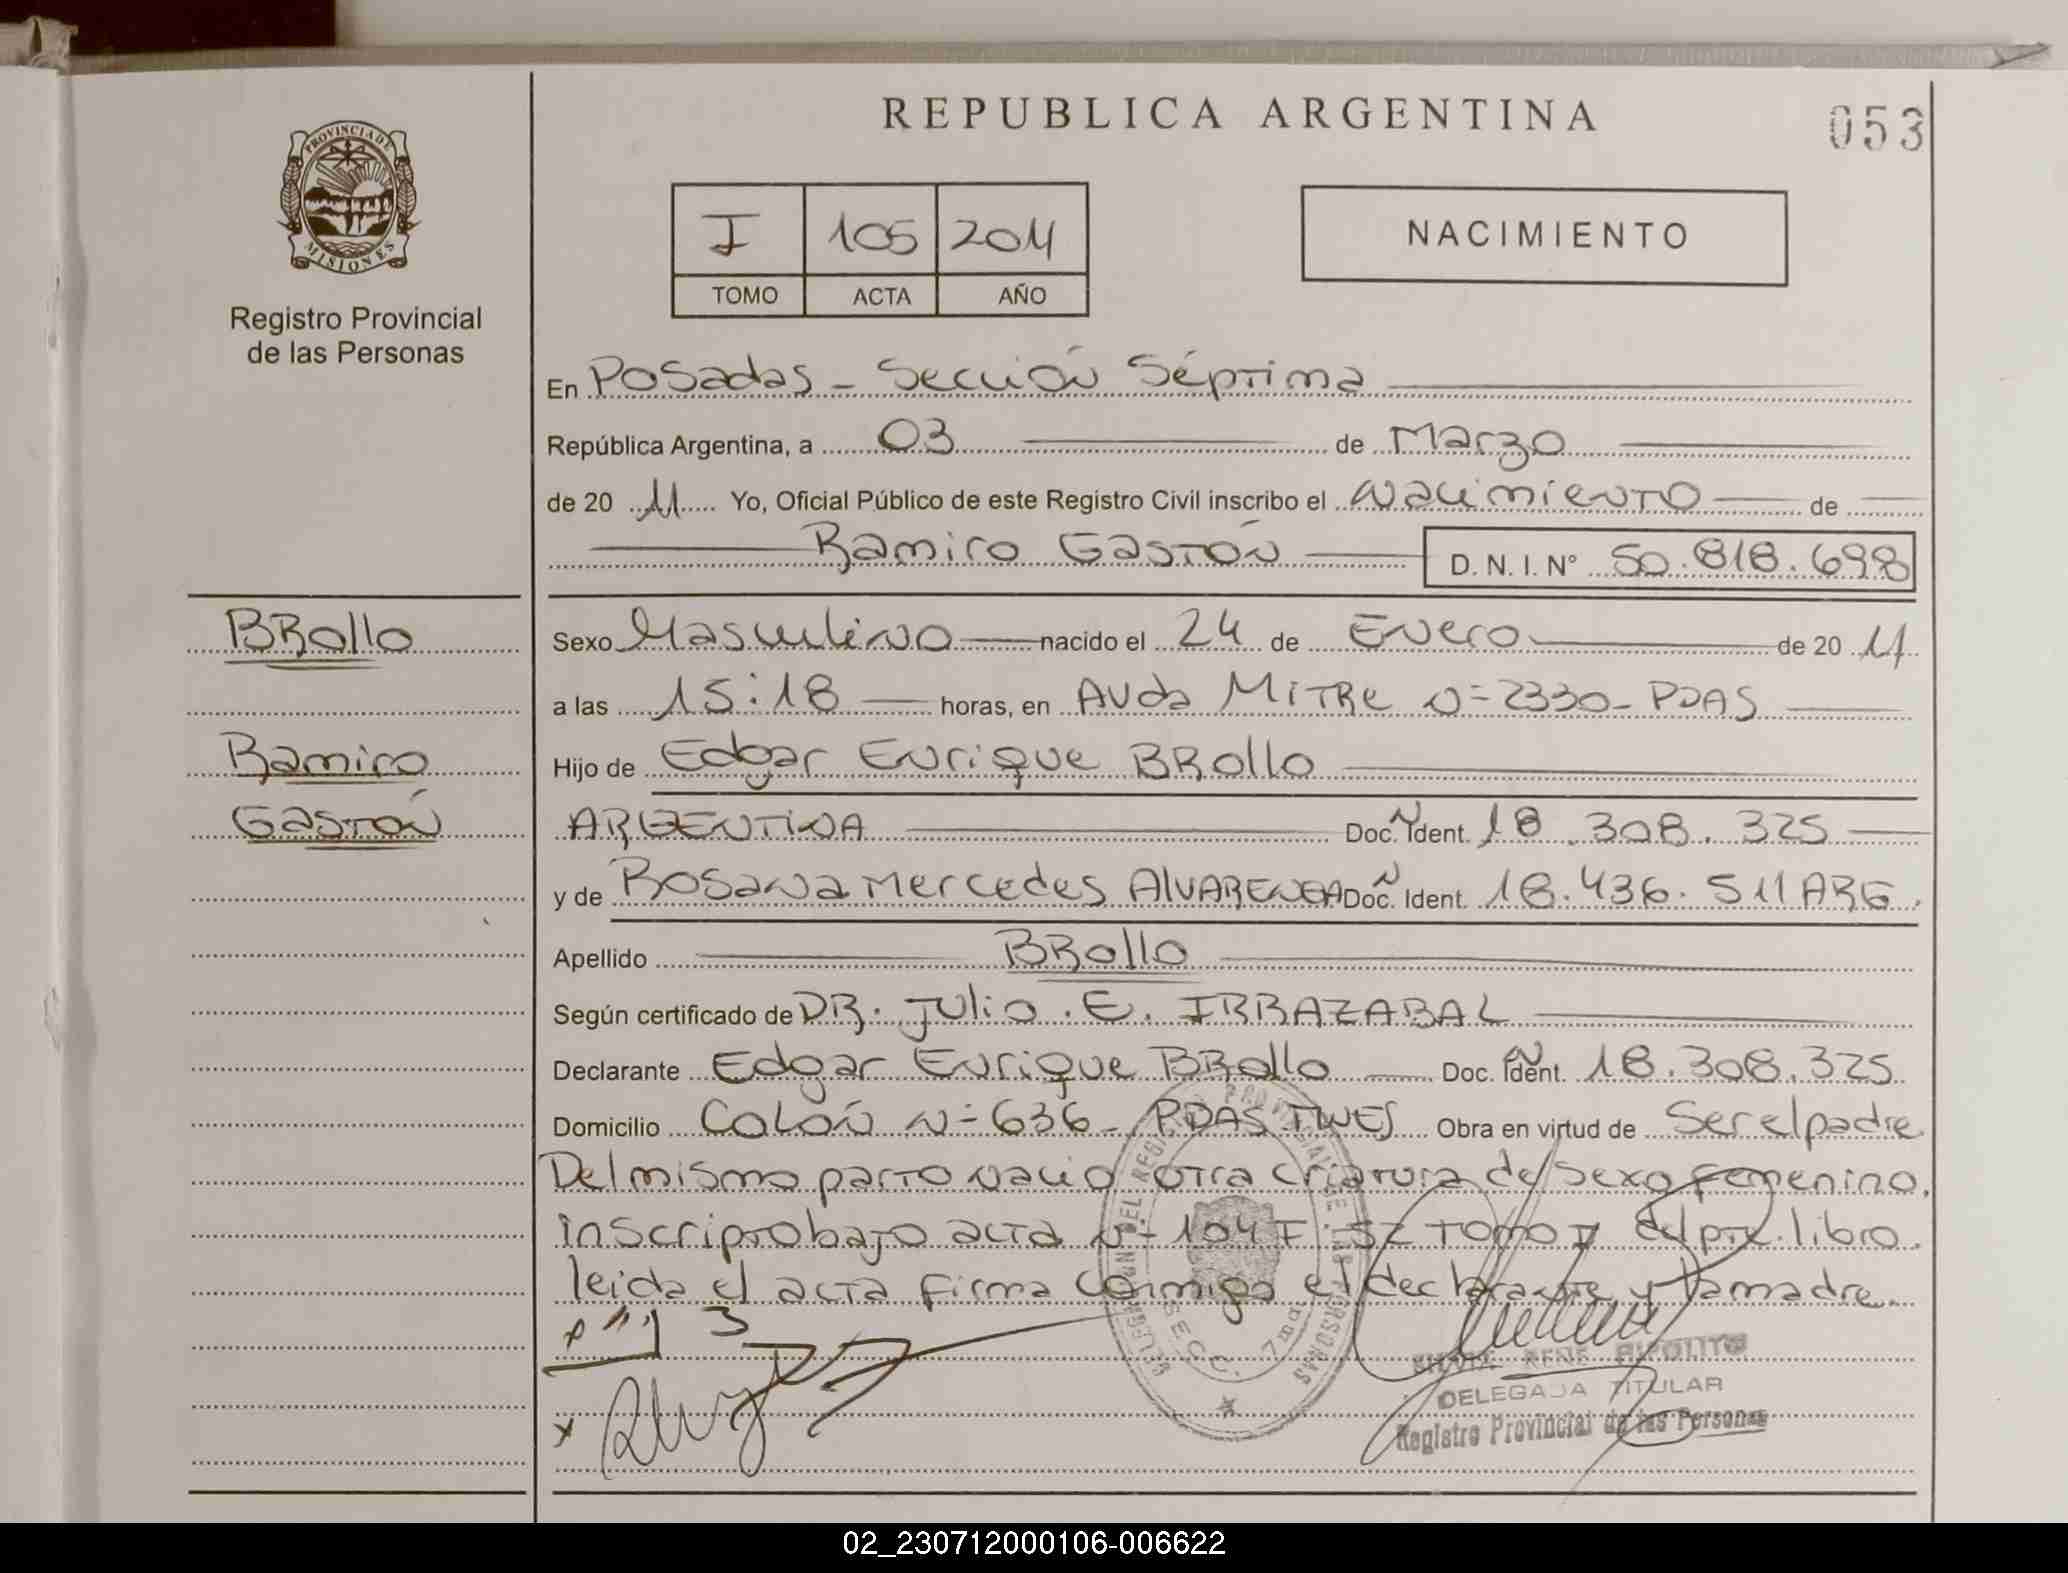 REPUBLICA ARGENTINA
053
PROVINCIA DE MISIONES
Registro Provincial
de las Personas
I 105 2011
TOMO ACTA AÑO
NACIMIENTO
En Posadas - Sección Séptima
República Argentina, a 03 de Marzo
de 20 11 Yo, Oficial Público de este Registro Civil inscribo el Nacimiento de
Ramiro Gastón D. N. I. N° 50.818.698
BRollo
Ramiro
Gastón
Sexo Masculino nacido el 24 de Enero de 20 11
a las 15:18 horas, en AVda MiTRe N=2330- PDAS
Hijo de Edgar Enrique BRollo
ARGENTINA Doc. Ident. 18.308.325
y de Rosana Mercedes ALVARENGA Doc. Ident. 18.436.511 ARG.
Apellido BRollo
Según certificado de DR. Julio.E. IRRAZABAL
Declarante Edgar Enrique BRollo Doc. Ident. 18.308.325
Domicilio COLÓN N=636- PDAS MNES Obra en virtud de Ser el padre
Del mismo parto nació otra criatura de sexo femenino,
inscripto bajo acta N=104 F 52 Tomo I del pte. libro.
leida el acta firma conmigo el declarante y la madre.
DELEGACION DEL REGISTRO PROVINCIAL DE LAS PERSONAS
SECC. 7ma
RENE RIPOLITO
DELEGADA TITULAR
Registro Provincial de las Personas
02_230712000106-006622